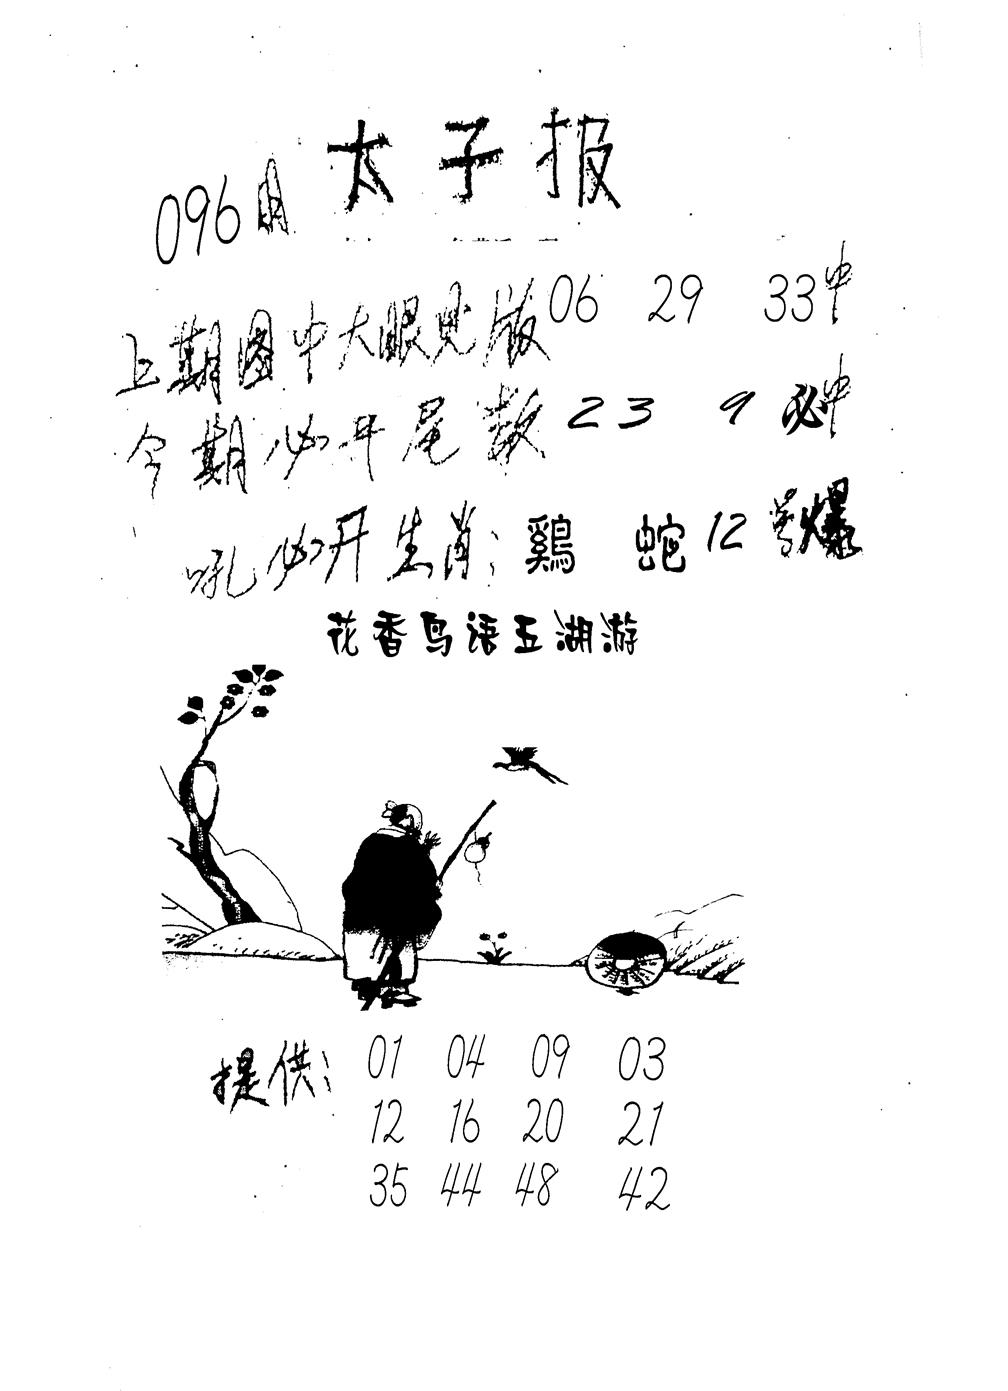 太子报
096期
上期图中大眼见版06 29 33中
今期必开尾数23 9必中
吼必开生肖：鷄 蛇12号爆
花香鸟语五湖游
提供：01 04 09 03
12 16 20 21
35 44 48 42